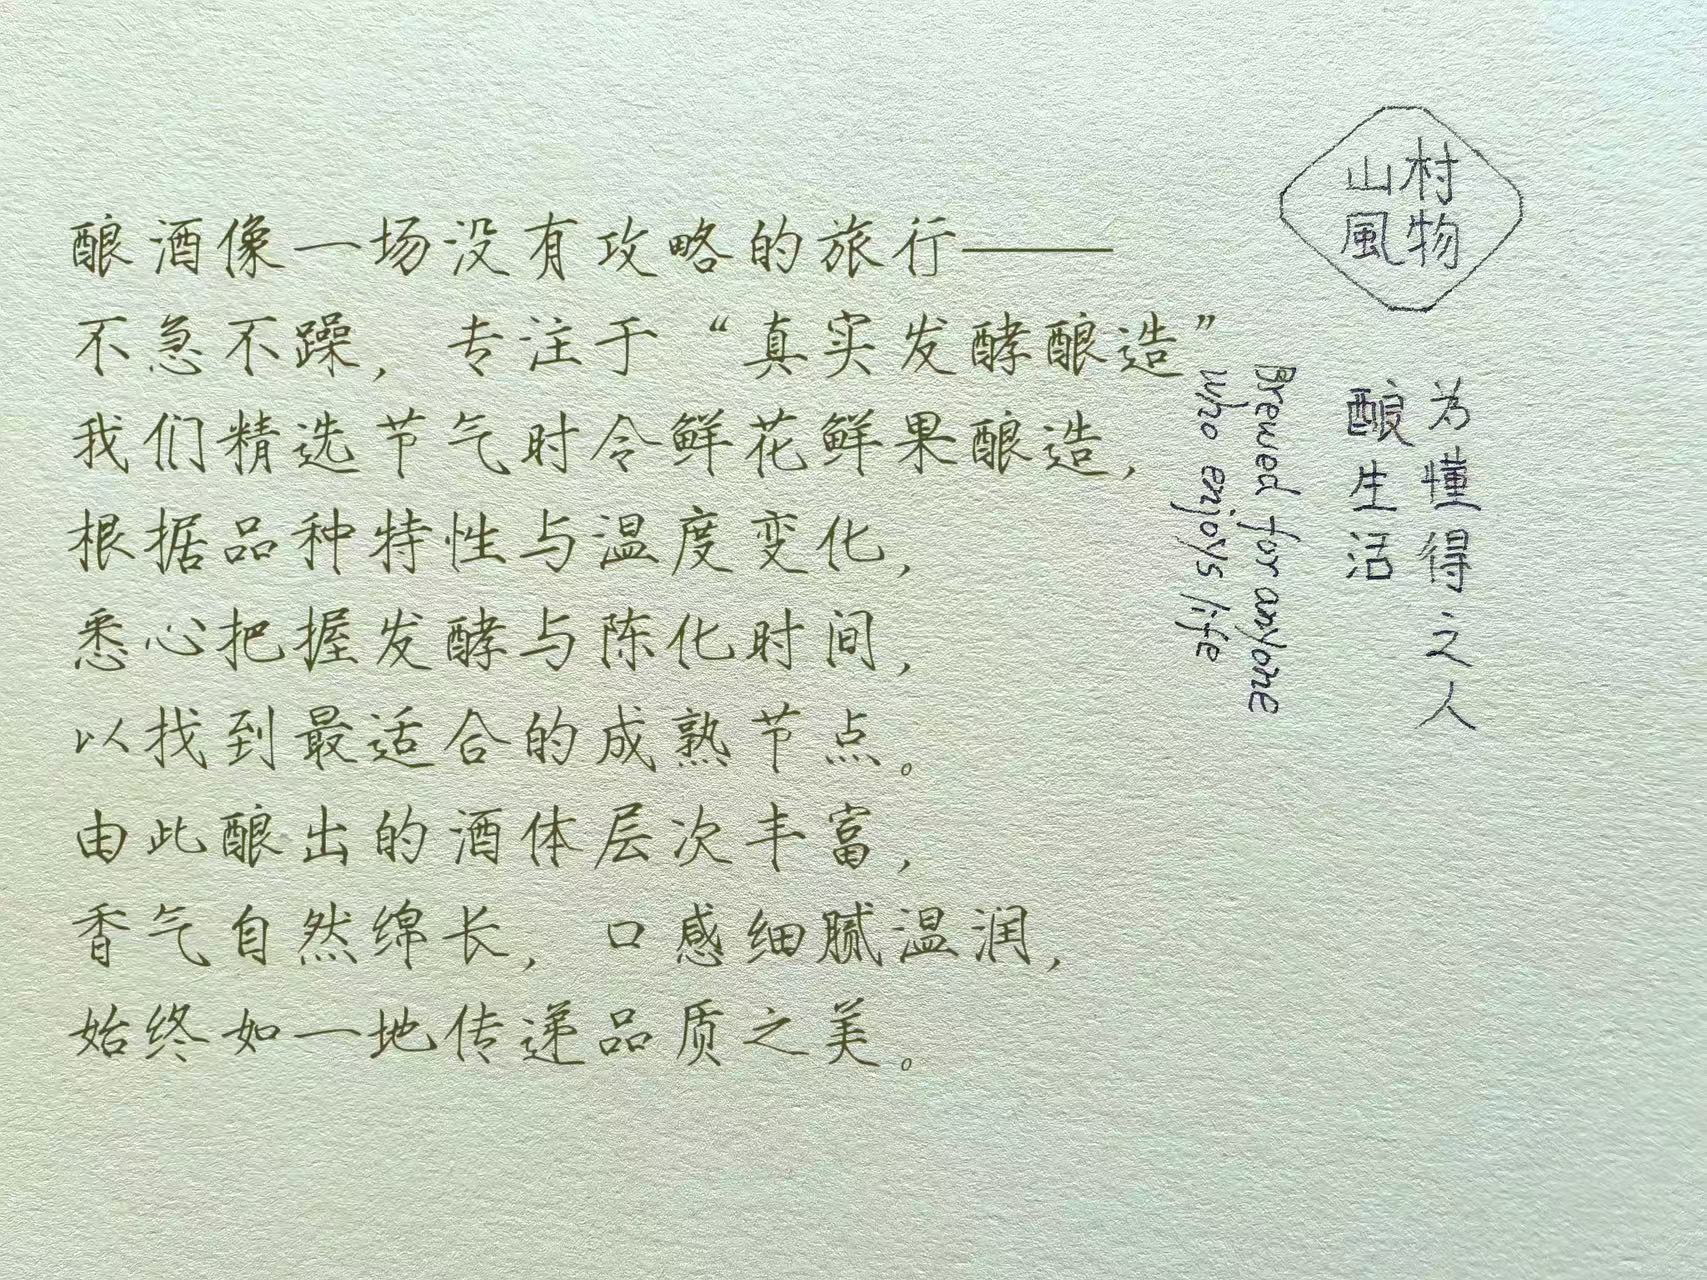 酿酒像一场没有攻略的旅行——
不急不躁，专注于“真实发酵酿造”
我们精选节气时令鲜花鲜果酿造，
根据品种特性与温度变化，
悉心把握发酵与陈化时间，
以找到最适合的成熟节点。
由此酿出的酒体层次丰富，
香气自然绵长，口感细腻温润，
始终如一地传递品质之美。
山村
風物
为懂得之人
酿生活
Brewed for anyone
who enjoys life